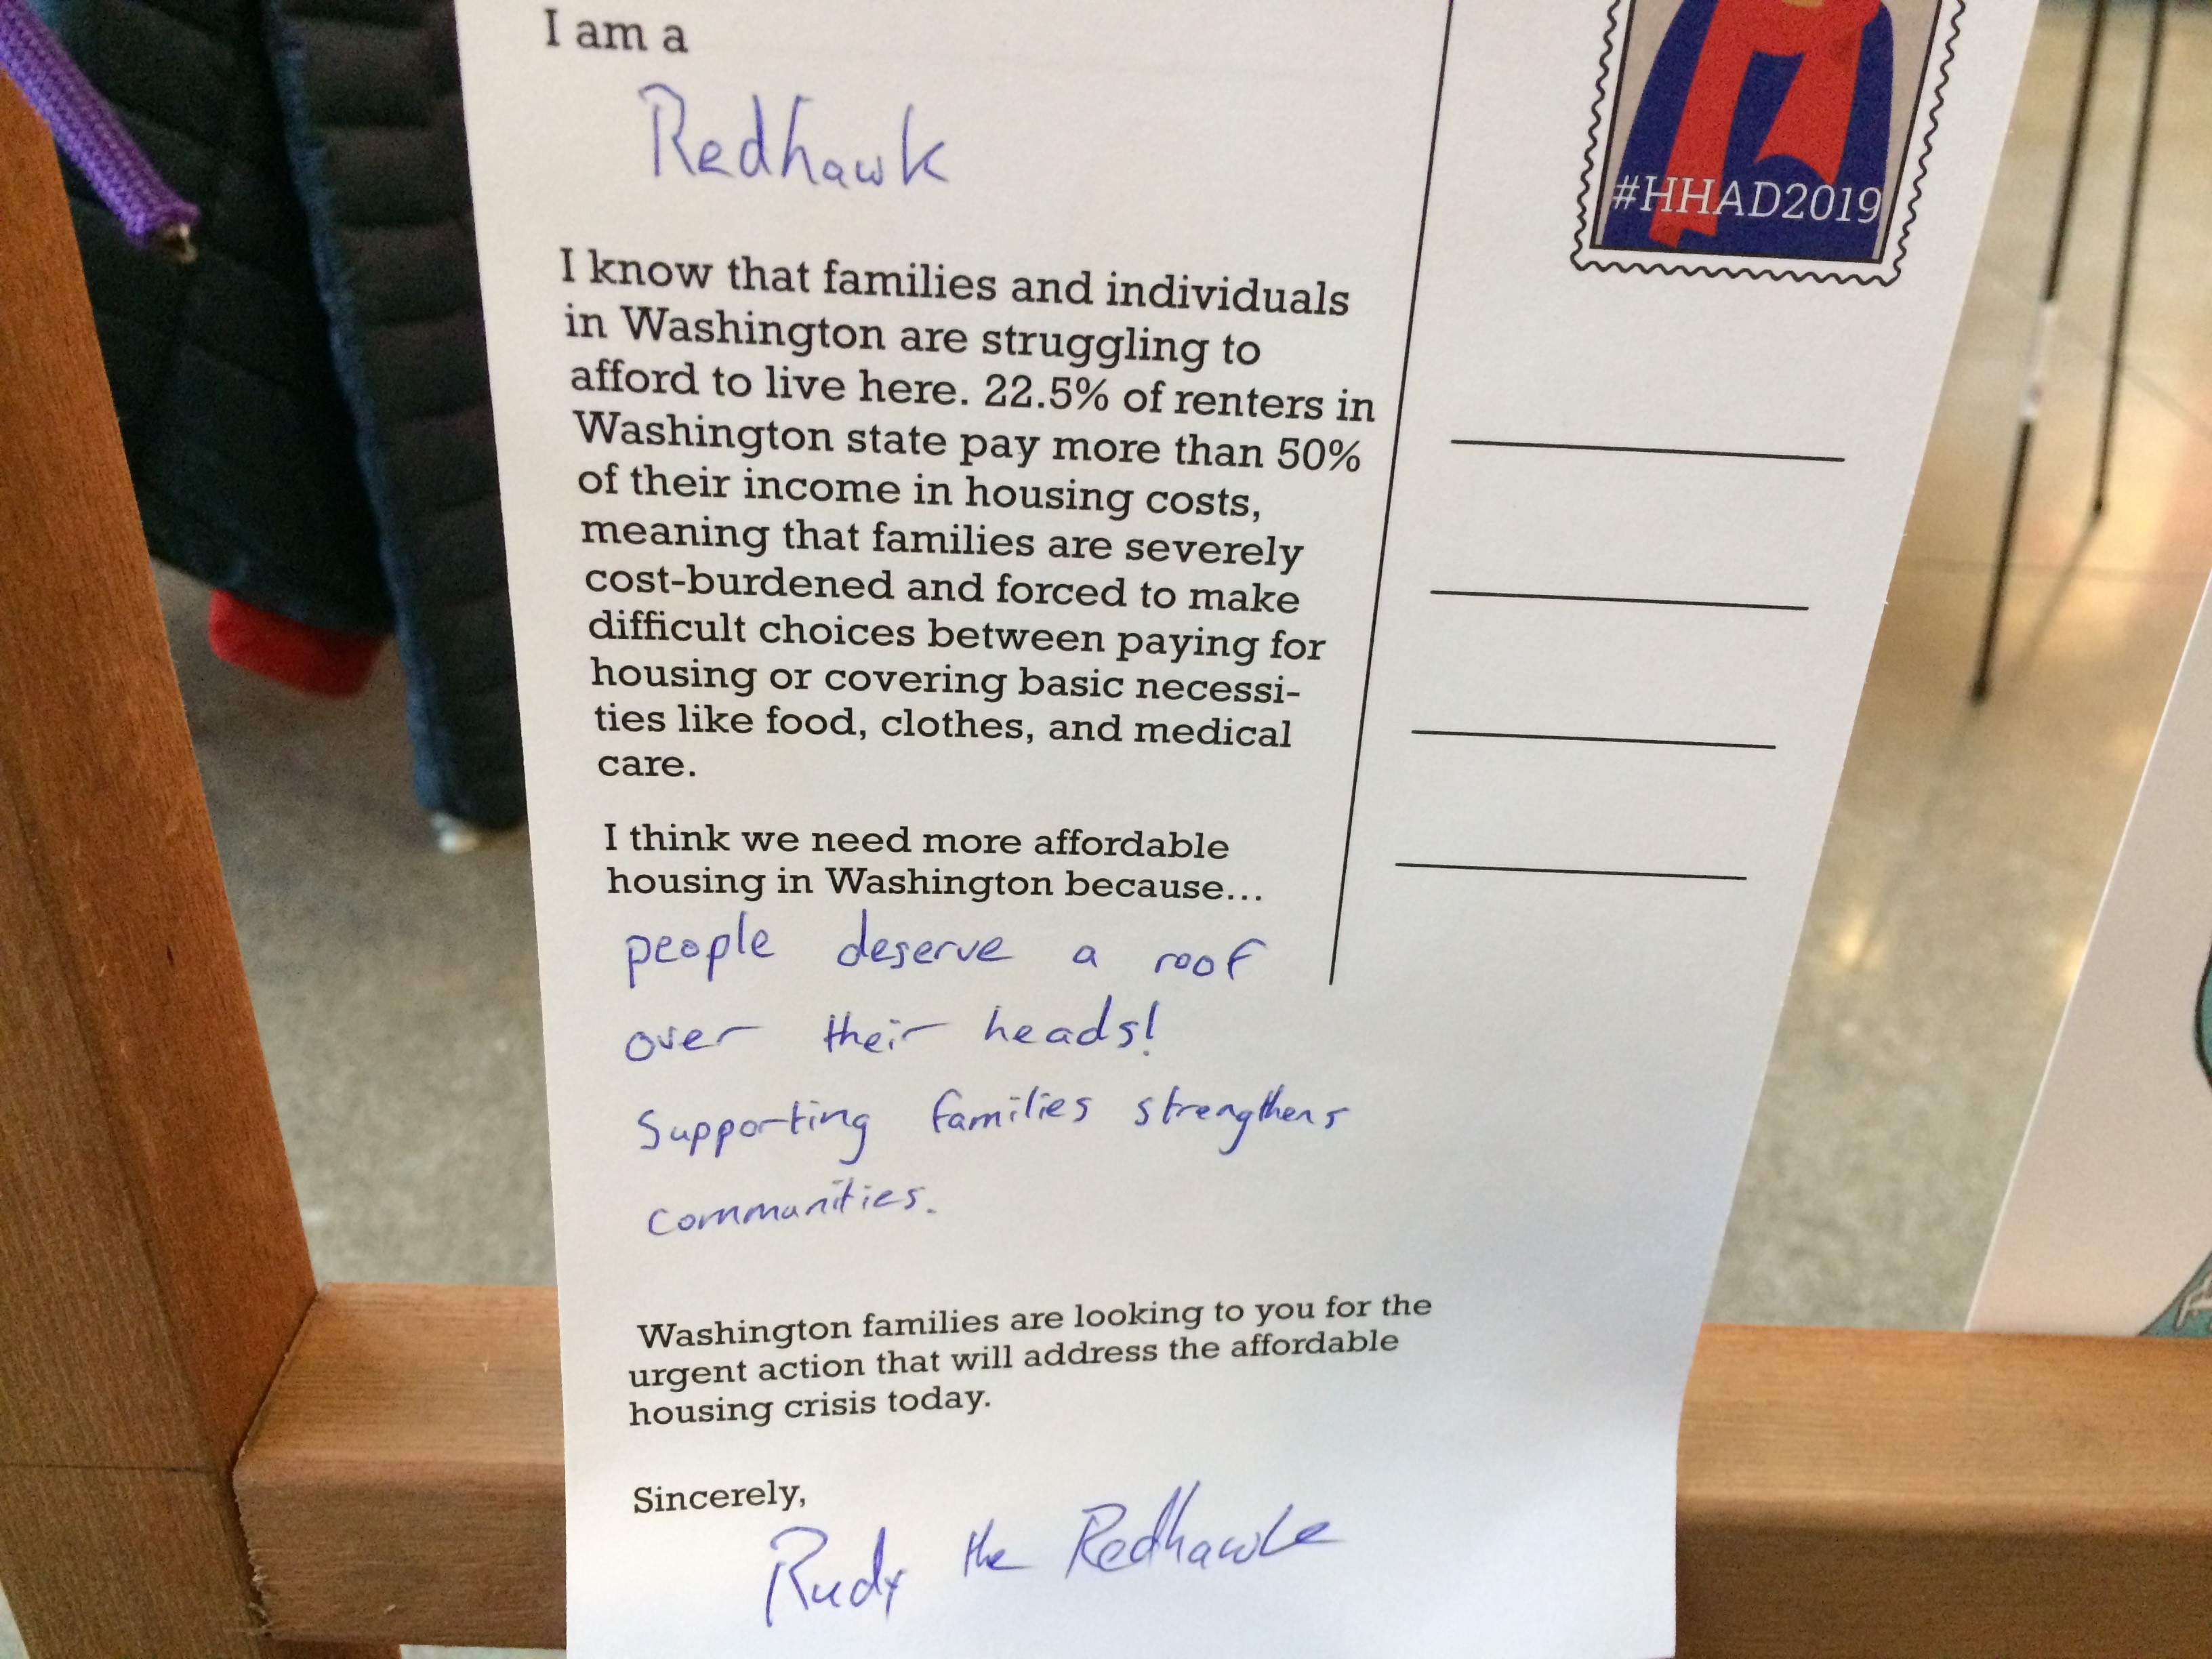 I am a
Redhawk
#HHAD2019
I know that families and individuals
in Washington are struggling to
afford to live here. 22.5% of renters in
Washington state pay more than 50%
of their income in housing costs,
meaning that families are severely
cost-burdened and forced to make
difficult choices between paying for
housing or covering basic necessi-
ties like food, clothes, and medical
care.
I think we need more affordable
housing in Washington because...
people deserve a roof
over their heads!
Supporting families strengthens
communities.
Washington families are looking to you for the
urgent action that will address the affordable
housing crisis today.
Sincerely,
Rudy the Redhawk